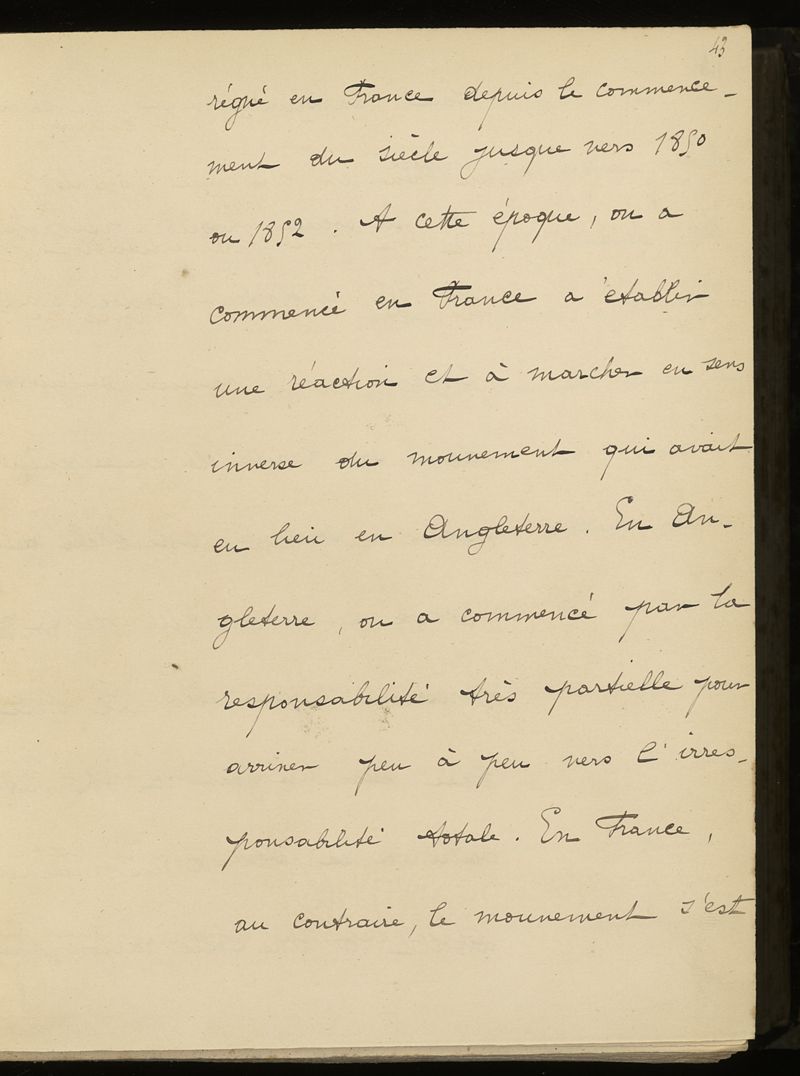 43
régné en France depuis le commence-
ment du siècle jusque vers 1850
ou 1852. A cette époque, on a
commencé en France a établir
une réaction et à marcher en sens
inverse du mouvement qui avait
eu lieu en Angleterre. En An-
gleterre, on a commencé par la
responsabilité très partielle pour
arriver peu à peu vers l'irres-
ponsabilité totale. En France,
au contraire, le mouvement s'est